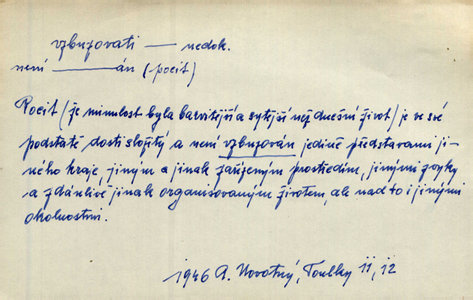 vzbuzovati — nedok.
není ——— án (pocit)
Pocit (že minulost byla barvitější a sytější než dnešní život) je ve své
podstatě dosti složitý a není vzbuzován jedině představami ji-
ného kraje, jiným a jinak zařízeným prostředím, jinými zvyky
a zdánlivě jinak organisovaným životem, ale nad to i jinými
okolnostmi.
1946 A. Novotný, Toulky II, 12